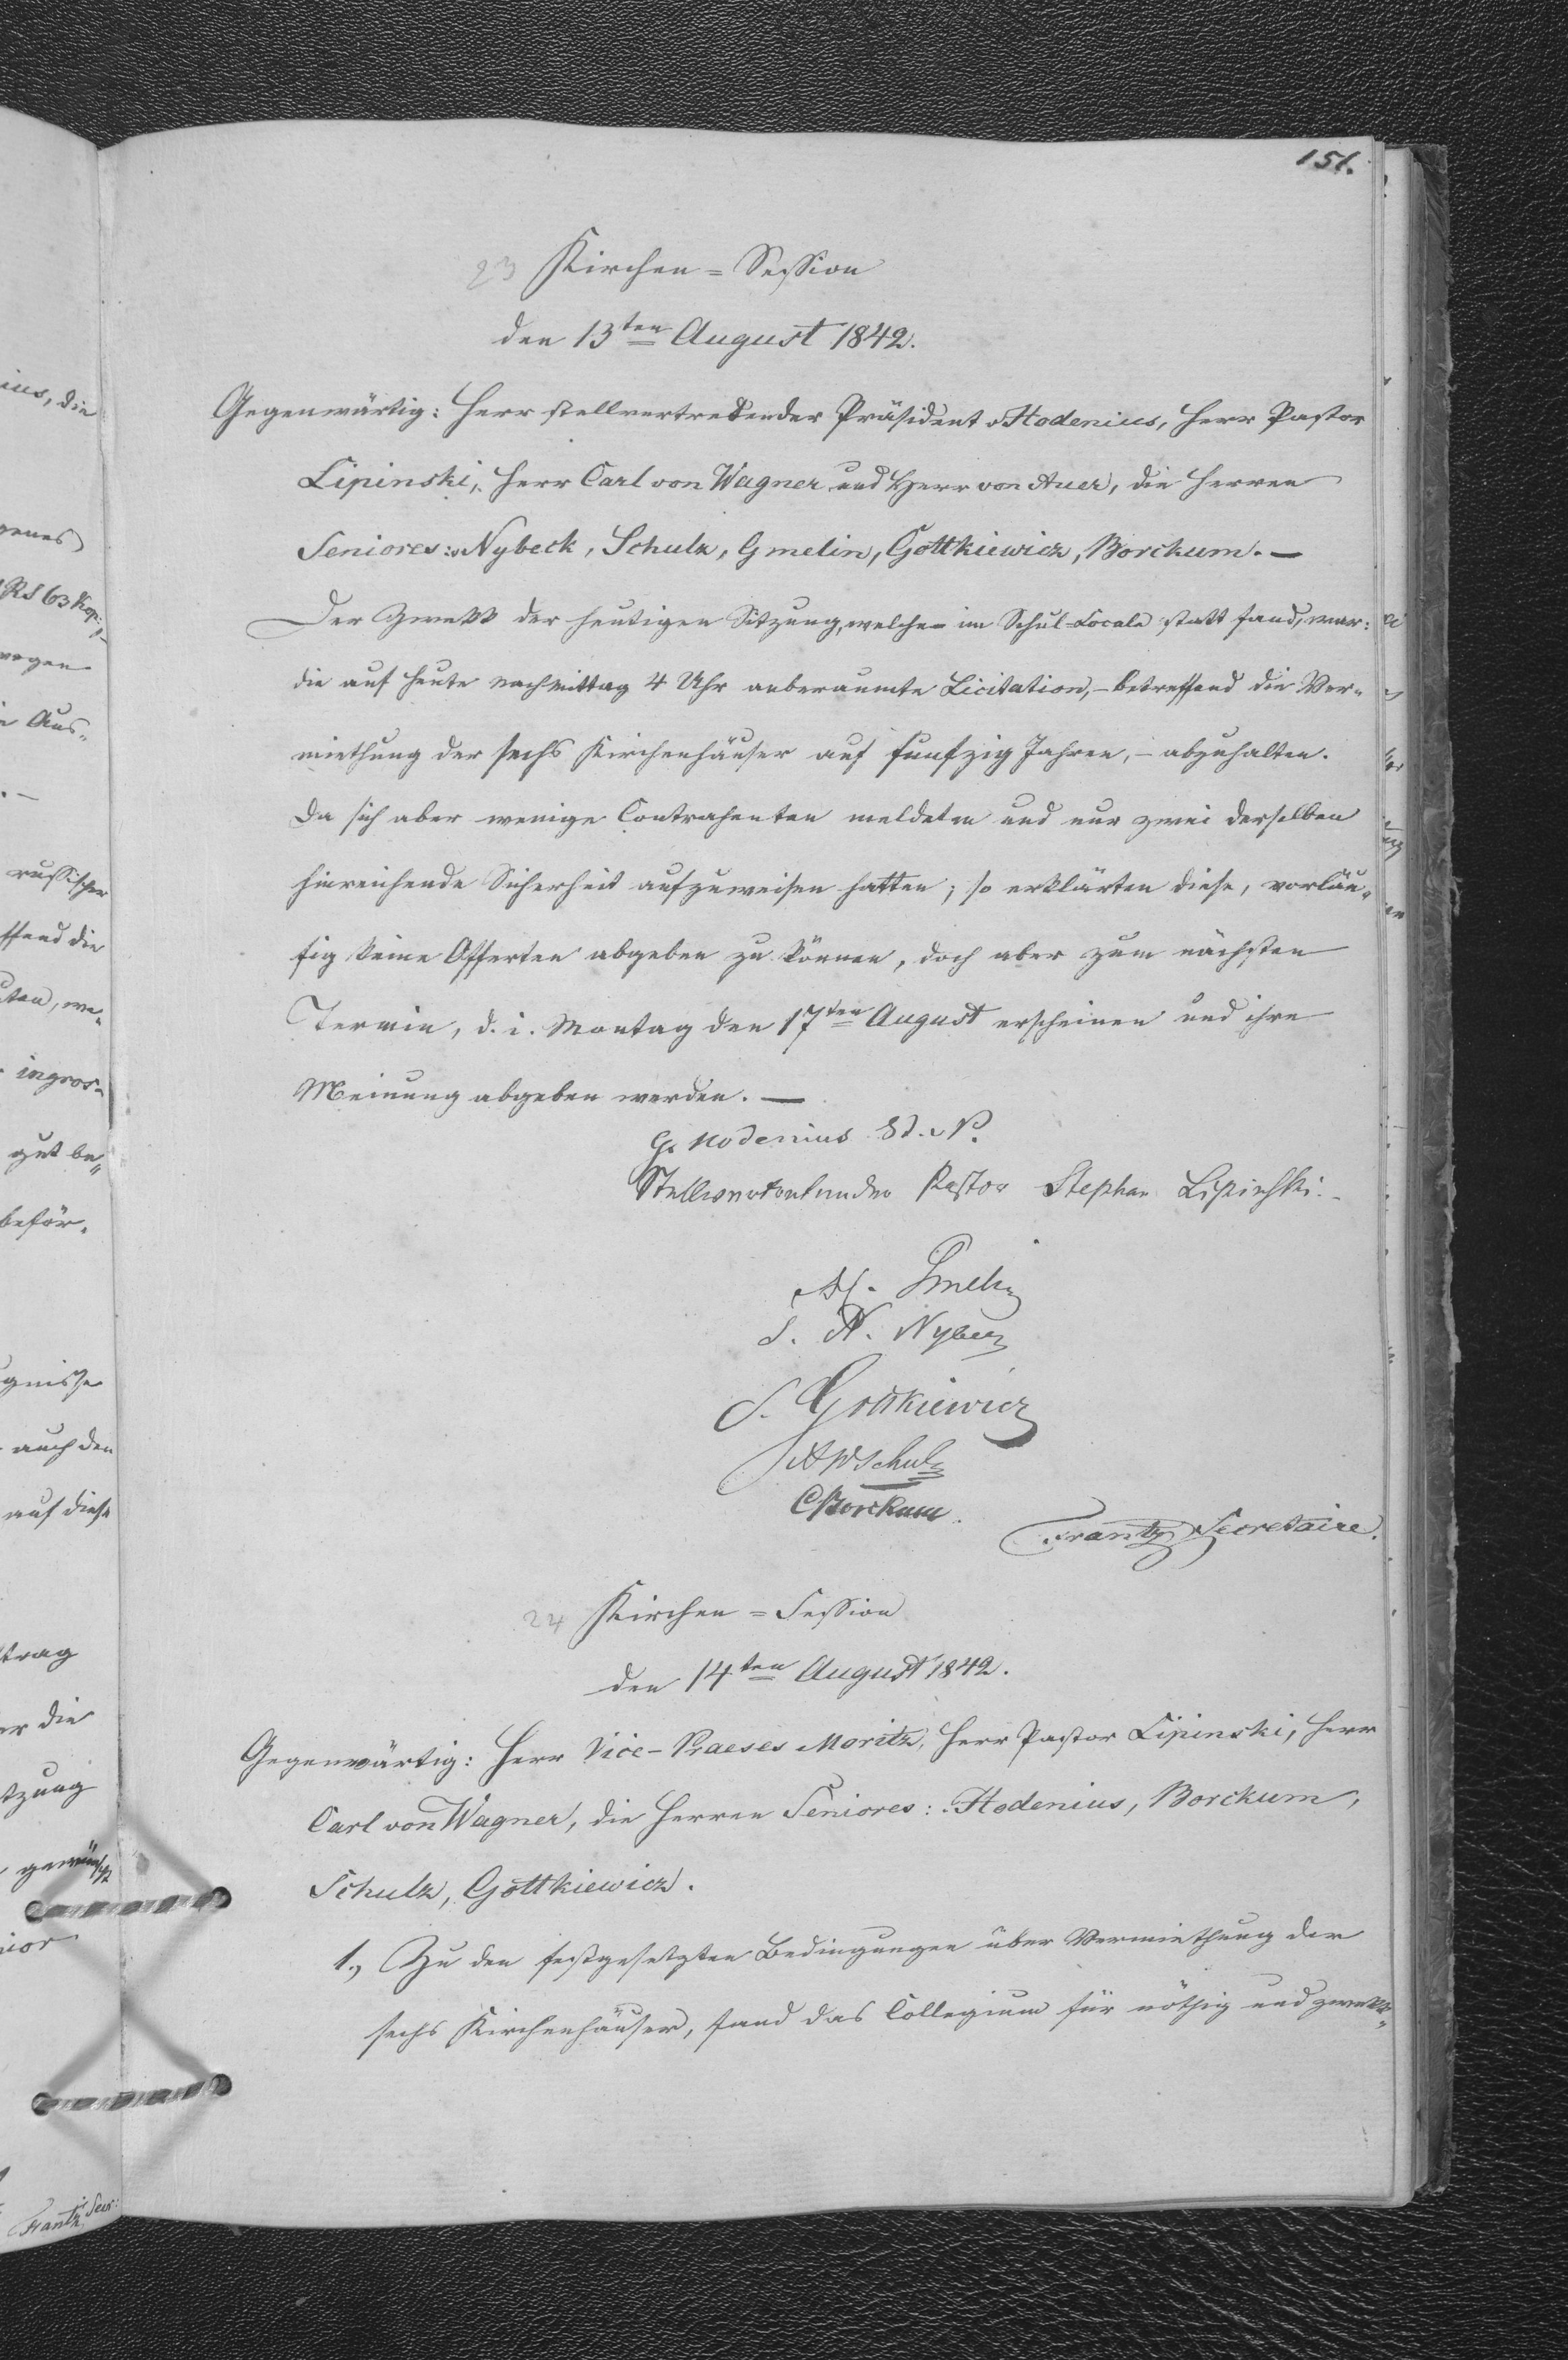 151.
23 Kirchen = Session
den 13ten August 1842.
Gegenwärtig: Herr stellvertretender Präsident Hodenius, Herr Pastor
Lipinski, Herr Carl von Wagner und Herr von Auer, die Herren
Seniores: Nybeck, Schulz, Gmelin, Gottkiewicz, Borckum. —
Der Zwekk der heutigen Sitzung, welche im Schul-Locale statt fand, war:
die auf heute Nachmittag 4 Uhr anberaumte Licitation, – betreffend die Ver-
miethung der sechs Kirchenhäuser auf funfzig Jahren, – abzuhalten.
Da sich aber wenige Contrahenten meldeten und nur zwei derselben
hinreichende Sicherheit aufzuweisen hatten; so erklärten diese, vorläu-
fig keine Offerten abgeben zu können, doch aber zum nächsten
Termin, d. i. Montag den 17ten August erscheinen und ihre
Meinung abgeben werden. —
G. Hodenius St. P.
Stellvertretender Pastor Stephan Lipinski.
Gmelin
S. N. Nybeck
S. Gottkiewicz
A W Schulz
C Borckum.
Frantz Secretaire.
24 Kirchen = Session
den 14ten August 1842.
Gegenwärtig: Herr Vice-Praeses Moritz, Herr Pastor Lipinski, Herr
Carl von Wagner, die Herren Seniores: Hodenius, Borckum,
Schulz, Gottkiewicz.
1., Zu den festgesetzten Bedingungen über Vermiethung der
sechs Kirchenhäuser, fand das Collegium für nöthig und zwekk-
ius, die
RS 63 Kop:
wegen
Aus-
russischer
ffend die
ingros-
gut be-
beför-
gnisse
auch den
auf diese
trag
er die
tzung
nior
Frantz Secr: